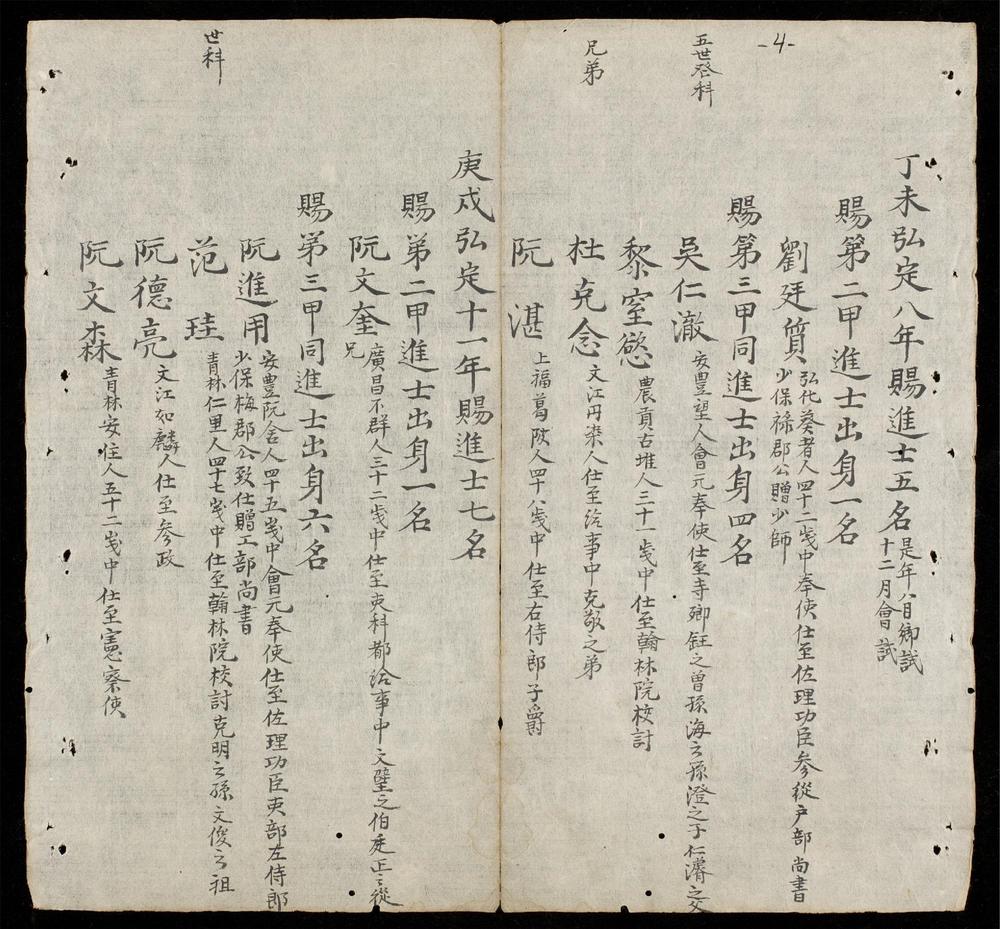 -4-
丁未弘定八年賜進士五名 是年八月鄉試
十二月會試
賜第二甲進士出身一名
劉廷質 弘化葵者人四十二歲中奉使仕至佐理功臣參從戶部尚書
少保祿郡公贈少師
賜第三甲同進士出身四名
五世登科
吳仁澈 安豊望人會元奉使仕至寺卿鈺之曾孫海之孫澄之子仁濬之父
黎窒慾 農貢古堆人三十一歲中仕至翰林院校討
兄弟
杜克念 文江丹染人仕至給事中克敬之弟
阮湛 上福葛陂人四十八歲中仕至右侍郎子爵
庚戌弘定十一年賜進士七名
賜第二甲進士出身一名
阮文奎 廣昌不群人三十二歲中仕至吏科都給事中文璧之伯廷正之從
兄
賜第三甲同進士出身六名
阮進用 安豊阮舍人四十五歲中會元奉使仕至佐理功臣吏部左侍郎
少保梅郡公致仕贈工部尚書
世科
范珪 青林仁里人四十七歲中仕至翰林院校討克明之孫文俊之祖
阮德亮 文江如麟人仕至參政
阮文森 青林安住人五十二歲中仕至憲察使